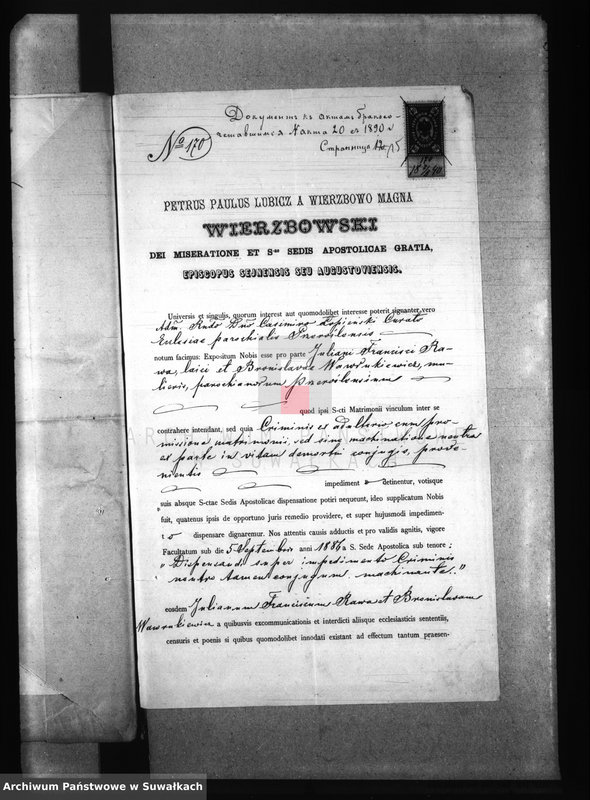 Документъ къ актамъ бракосо-
четавшихся №акта 20 съ 1890 г
Страница
№ 170
PETRUS PAULUS LUBICZ A WIERZBOWO MAGNA
WIERZBOWSKI
DEI MISERATIONE ET Sae SEDIS APOSTOLICAE GRATIA,
EPISCOPUS SEJNENSIS SEU AUGUSTOVIENSIS.
Universis et singulis, quorum interest aut quomodolibet interesse poterit signanter vero
Adm. Rndo Dno Casimiro Łopieński Curato
Eclesiae parochialis Przeroślensis
notum facimus: Expositum Nobis esse pro parte Juliani Francisci Ra-
wa, laici et Bronislavae Wawrukiewicz, mu-
lieris, parochianorum Przeroślensium
quod ipsi S-cti Matrimonii vinculum inter se
contrahere intendant, sed quia Criminis ex adulterio cum pro-
missione matrimonii, sed sine machinatione neutra
ex parte in vitam demortui conjugis, prove-
nientis
impediment o detinentur, votisque
suis absque S-ctae Sedis Apostolicae dispensatione potiri nequeunt, ideo supplicatum Nobis
fuit, quatenus ipsis de opportuno juris remedio providere, et super hujusmodi impedimen-
t o dispensare dignaremur. Nos attentis causis adductis et pro validis agnitis, vigore
Facultatum sub die 5 Septembris anni 1886 a S. Sede Apostolica sub tenore:
"Dispensandi super impedimento Criminis
neutro tamen conjugum machinante."
eosdem Julianum Franciscum Rawa et Bronislavam
Wawrukiewicz a quibusvis excommunicationis et interdicti aliisque ecclesiasticis sententiis,
censuris et poenis si quibus quomodolibet innodati existant ad effectum tantum praesen-
Archiwum Państwowe w Suwałkach